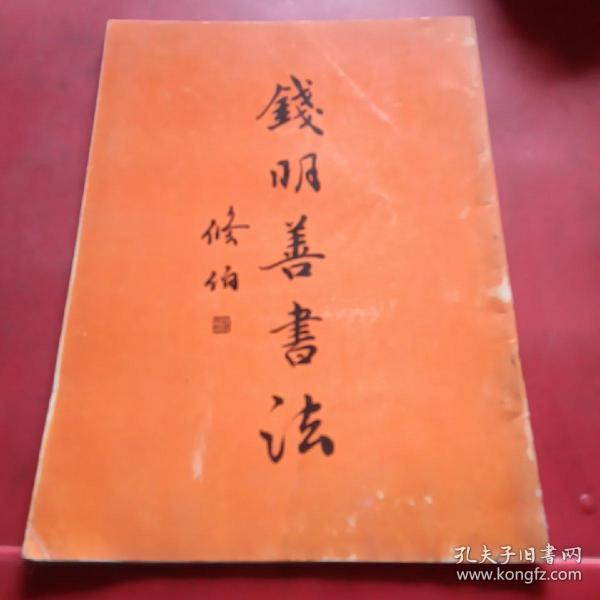 錢明善書法
修伯
孔夫子旧书网
www.kongfz.com